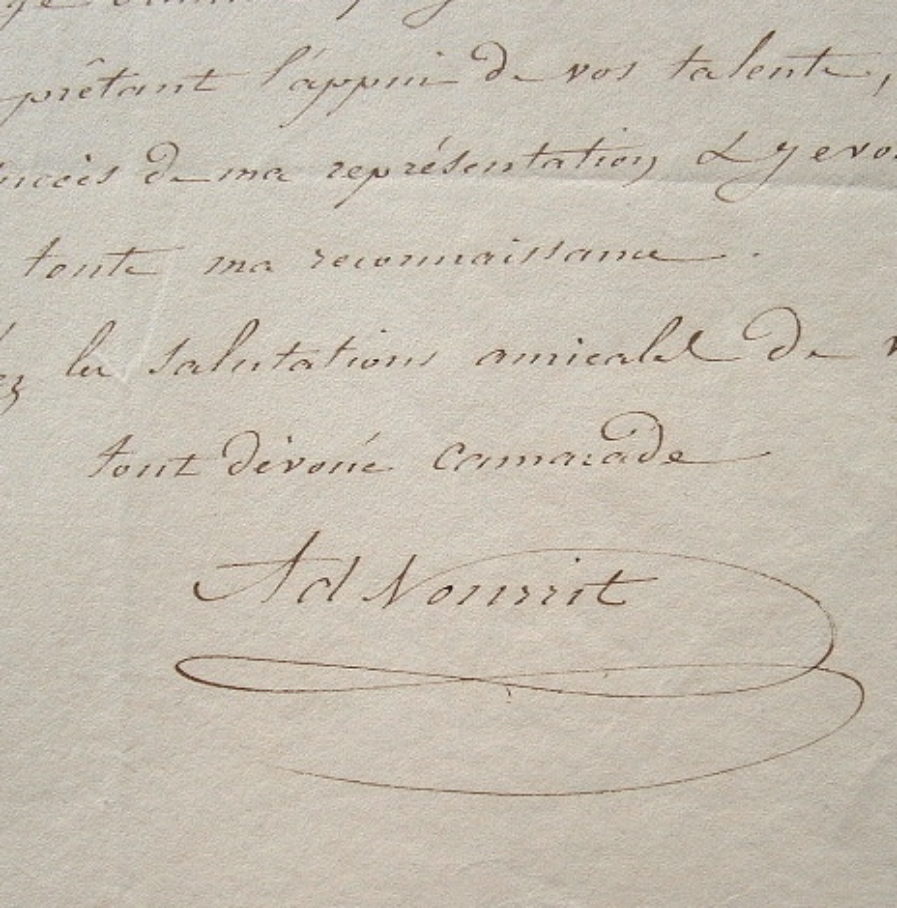 prêtant l'appui de vos talents,
succès de ma représentation, & je vo
toute ma reconnaissance.
ez les salutations amicales de v
tout dévoué camarade
Ad Nourrit